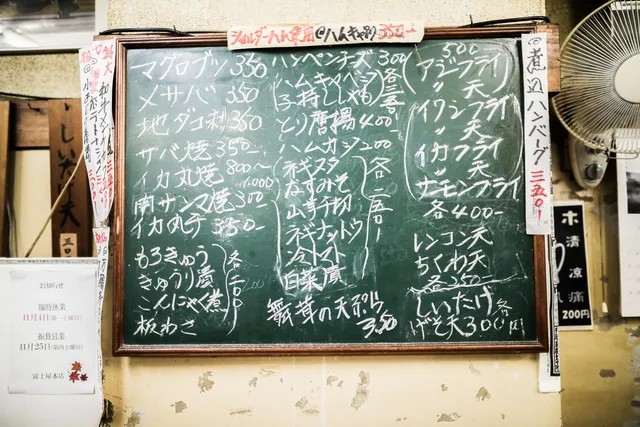 ショルダーハム使用 @ハムキャベツ 350-
マグロブツ 350
メサバ 350
地ダコ刺 350
サバ焼 350-
イカ丸焼 800~ 1,000
開サンマ焼 300
イカ丸干 350-
もろきゅう
きゅうり漬
こんにゃく煮
板わさ
各二〇〇
ハンペンチーズ 300
ハムキャベツ
子持ししゃも
各三五〇
とり唐揚 400-
ハムカツ 200
ネギヌタ
なすみそ
山芋千切
ネギナットウ
冷トマト
白菜漬
各二五〇-
舞茸の天ぷら
350
500
アジフライ
〃 天
イワシフライ
〃 天
イカフライ
〃 天
サーモンフライ
各400-
レンコン天
ちくわ天
各350-
しいたけ
げそ天 各300円
煮込ハンバーグ 三五〇-
清涼痛
200円
お知らせ
臨時休業
11月4日(祭・土曜日)
振替営業
11月25日(第四土曜日)
富士屋本店